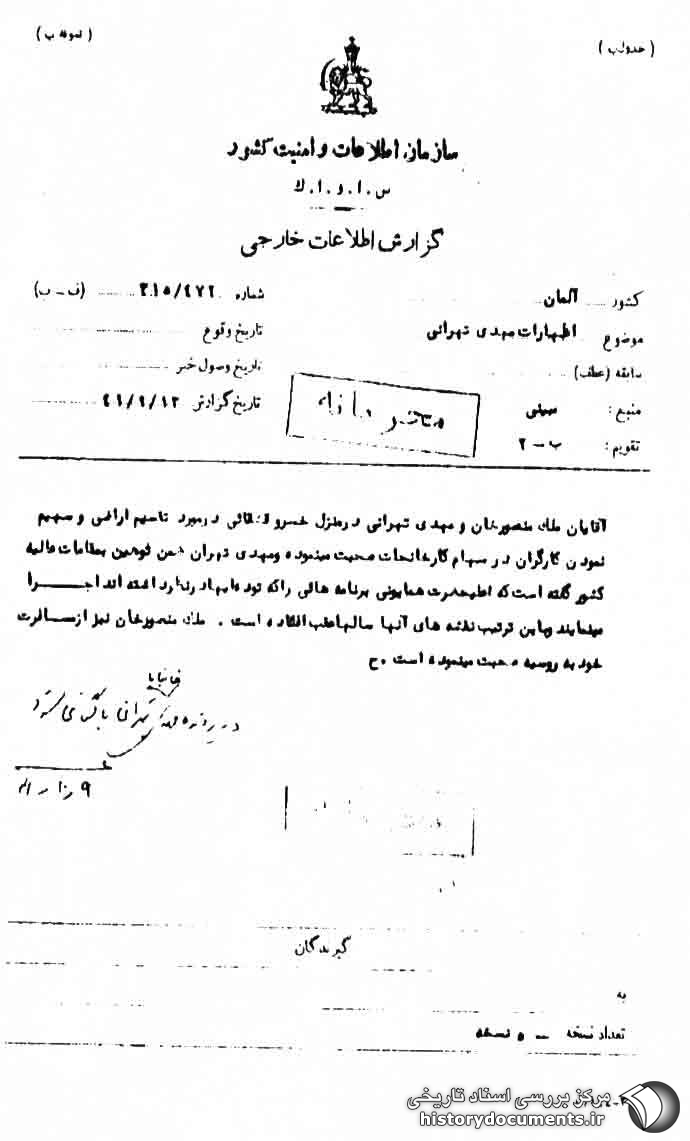 ( جدول ب )
( نمونه ب )
سازمان اطلاعات و امنیت کشور
س . ا . و . ا . ک
گزارش اطلاعات خارجی
کشور آلمان
شماره ۳۱۵/۴۷۲ (ف - ب)
موضوع اظهارات مهدی تهرانی
تاریخ وقوع
سابقه (عطف)
تاریخ وصول خبر
منبع :
تاریخ گزارش
محرمانه
تقویم : ب - ۲
آقایان ملک منصورخان و مهدی تهرانی درمنزل خسرو قشقائی درمورد تقسیم اراضی و سهیم
نمودن کارگران در سهام کارخانجات صحبت مینموده ومهدی تهران ضمن توهین بمقامات عالیه
کشور گفته است که اعلیحضرت همایونی برنامه هائی راکه توده ایها درنظر داشته اند اجرا
مینمایند وباین ترتیب نقشه های آنها سالها عقب افتاده است . ملک منصورخان نیز از مسافرت
خود به روسیه صحبت مینموده است . ح
در پرونده مهدی تهرانی
گیرندگان
به
تعداد نسخه - ۵ نسخه
مرکز بررسی اسناد تاریخی
historydocuments.ir